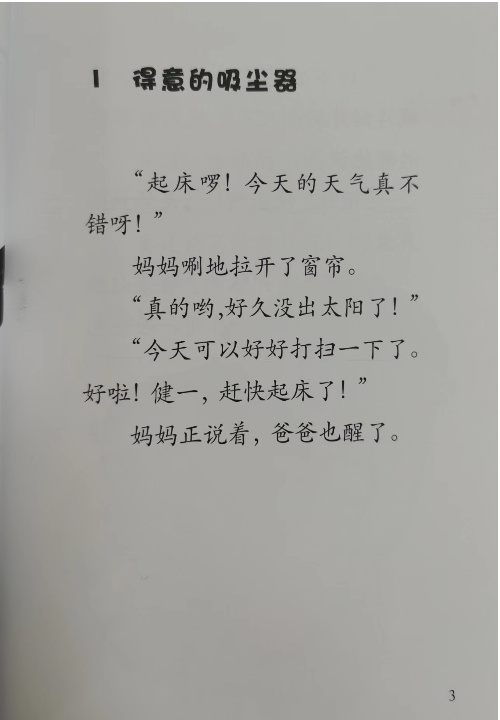 1 得意的吸尘器
“起床啰！今天的天气真不
错呀！”
妈妈唰地拉开了窗帘。
“真的哟,好久没出太阳了！”
“今天可以好好打扫一下了。
好啦！健一，赶快起床了！”
妈妈正说着，爸爸也醒了。
3